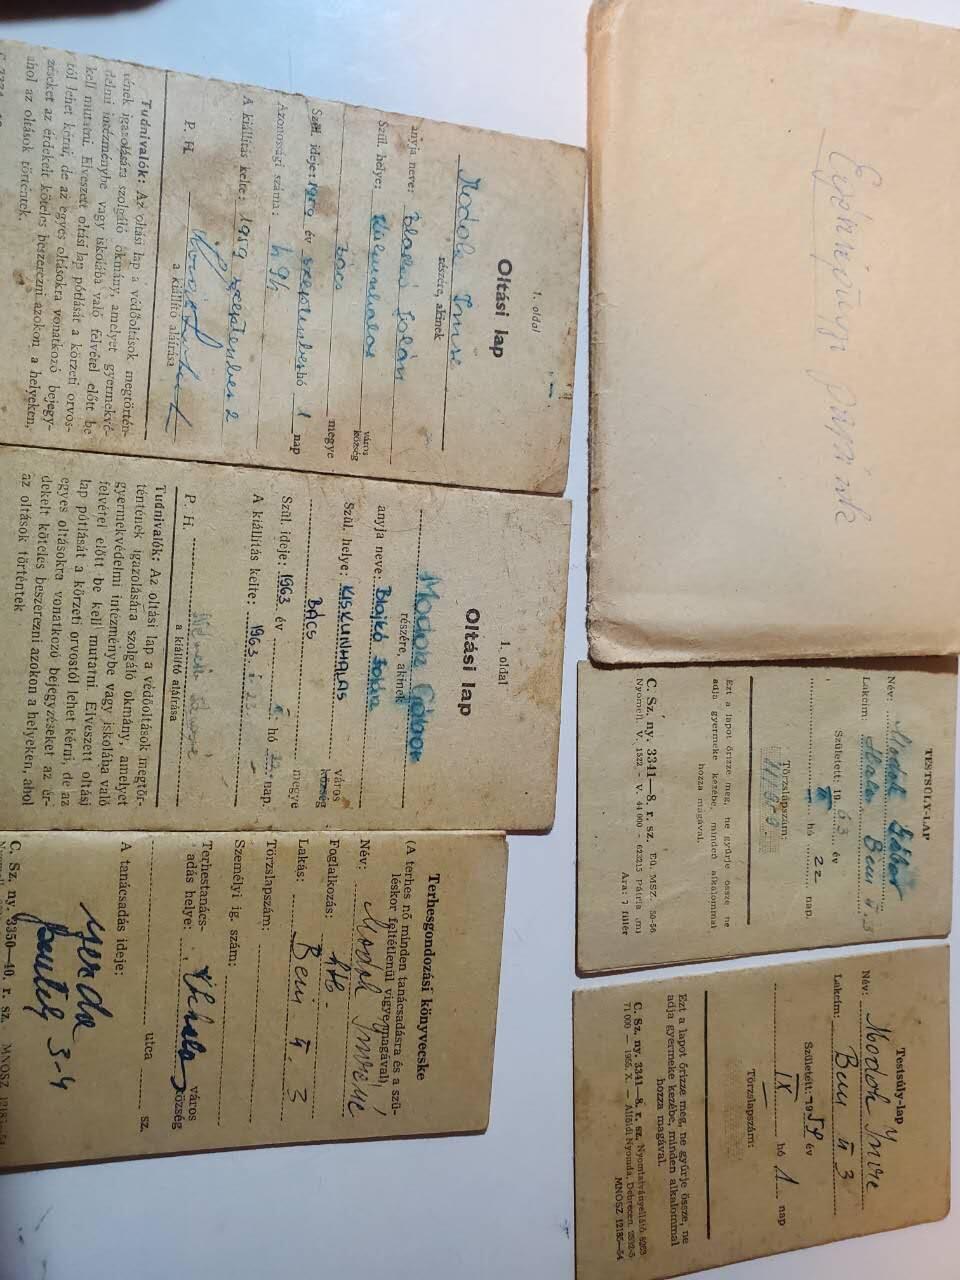 1. oldal
Oltási lap
Modok Imre
részére, akinek
anyja neve: Blaskó Jolán
Szül. helye: Kiskunhalas
város
község
Bács
megye
Szül. ideje: 1959 év szeptember hó 1 nap
Azonossági száma:
A kiállítás kelte: 1959 szeptember 2
P. H.
a kiállító aláírása
Tudnivalók: Az oltási lap a védőoltások megtörtén-
tének igazolására szolgáló okmány, amelyet gyermekvé-
delmi intézménybe vagy iskolába való felvétel előtt be
kell mutatni. Elveszett oltási lap pótlását a körzeti orvos-
tól lehet kérni, de az egyes oltásokra vonatkozó bejegy-
zéseket az érdekelt köteles beszerezni azokon a helyeken,
ahol az oltások történtek.
1. oldal
Oltási lap
Modok Gábor
részére, akinek
anyja neve: Blaskó Jolán
Szül. helye: KISKUNHALAS
város
község
BÁCS
megye
Szül. ideje: 1963 év hó 22 nap.
A kiállítás kelte: 1963.
P. H.
a kiállító aláírása
Tudnivalók: Az oltási lap a védőoltások megtör-
téntének igazolására szolgáló okmány, amelyet
gyermekvédelmi intézménybe vagy iskolába való
felvétel előtt be kell mutatni. Elveszett oltási
lap pótlását a körzeti orvostól lehet kérni, de az
egyes oltásokra vonatkozó bejegyzéseket az ér-
dekelt köteles beszerezni azokon a helyeken, ahol
az oltások történtek
Terhesgondozási könyvecske
(A terhes nő minden tanácsadásra és a szü-
léskor feltétlenül vigye magával)
Név: Modok Imréné
Foglalkozás: htb.
Lakás: Bem u. 3
Törzslapszám:
Személyi ig. szám:
Terhestanács-
adás helye: Khalas
város
község
utca sz.
A tanácsadás ideje:
szerda
3-4
C. Sz. ny. 3350—40. r. sz. MNOSZ
TESTSÚLY-LAP
Név: Modok Gábor
Lakcím: Halas Bem u. 3
Született: 1963 év
hó 22 nap.
Törzslapszám:
Ezt a lapot őrizze meg, ne gyűrje össze ne
adja gyermeke kezébe, minden alkalommal
hozza magával.
C. Sz. ny. 3341—8. r. sz. Eü. MSZ. 50-56.
Ára: 7 fillér
Testsúly-lap
Név: Modok Imre
Lakcím: Bem u 3
Született: 1959 év
IX hó 1 nap
Törzslapszám:
Ezt a lapot őrizze meg, ne gyűrje össze, ne
adja gyermeke kezébe, minden alkalommal
hozza magával.
C. Sz. ny. 3341—8. r. sz. Nyomtatványellátó
71 000 — 1955. X. — Alföldi Nyomda, Debrecen.
MNOSZ 12185—54